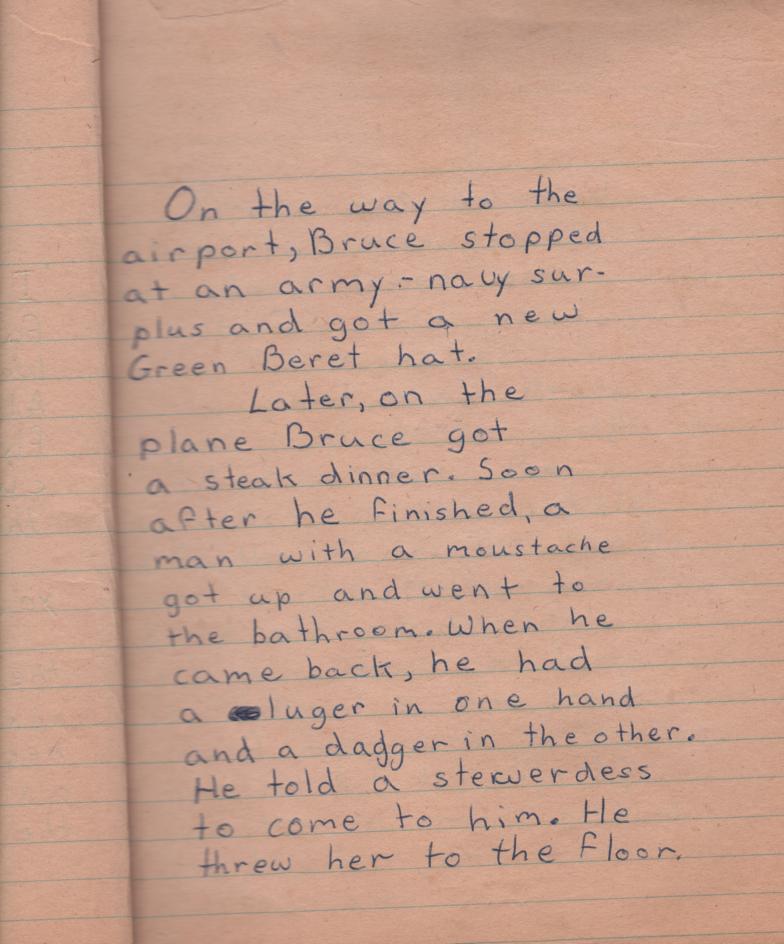 On the way to the
airport, Bruce stopped
at an army-navy sur-
plus and got a new
Green Beret hat.
Later, on the
plane Bruce got
a steak dinner. Soon
after he finished, a
man with a moustache
got up and went to
the bathroom. When he
came back, he had
a luger in one hand
and a dagger in the other.
He told a stewerdess
to come to him. He
threw her to the floor.